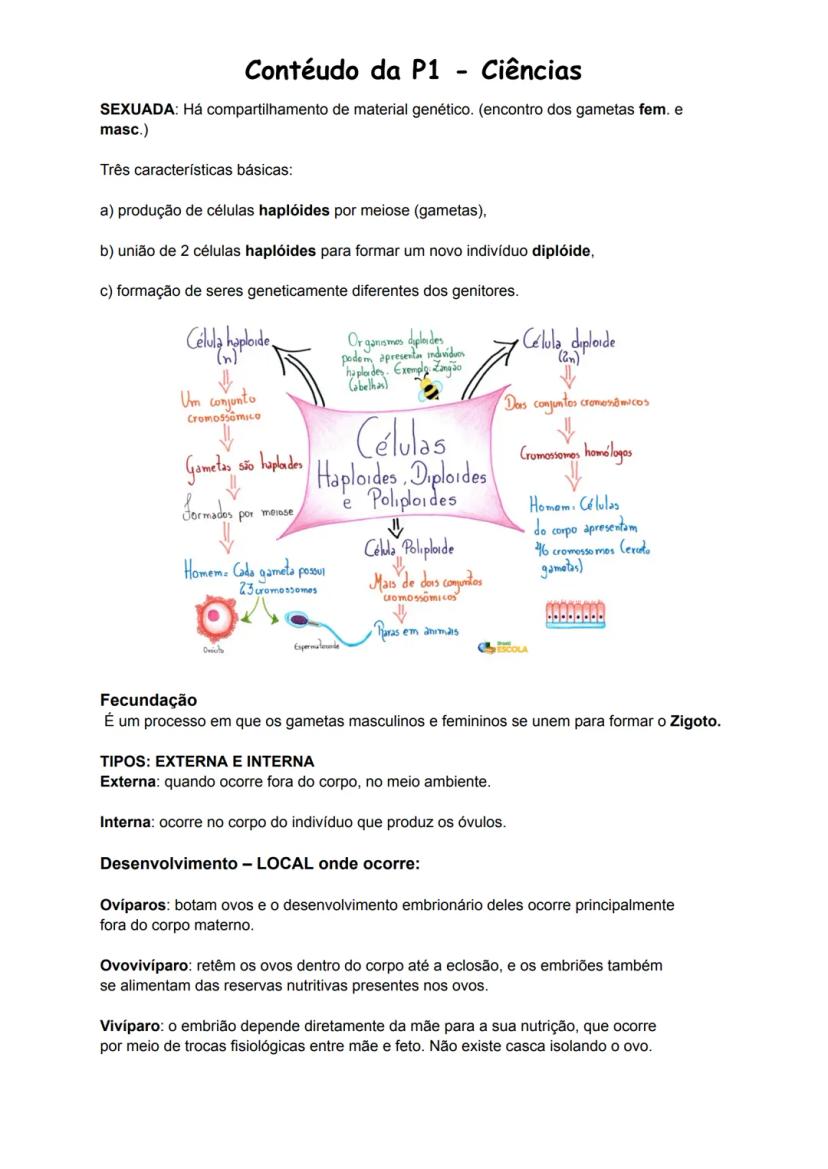 Contéudo da P1 - Ciências
SEXUADA: Há compartilhamento de material genético. (encontro dos gametas fem. e
masc.)
Três características básicas:
a) produção de células haplóides por meiose (gametas),
b) união de 2 células haplóides para formar um novo indivíduo diplóide,
c) formação de seres geneticamente diferentes dos genitores.
Célula haploide
(n)
Um conjunto
cromossômico
Gametas são haploides
Formados por meiose
Homem: Cada gameta possui
23 cromossomos
Ovócito
Espermatozoide
Organismos diploides
podem apresentar indivíduos
haploides. Exemplo: Zangão
(abelhas)
Células
Haploides, Diploides
e Poliploides
Célula Poliploide
Mais de dois conjuntos
cromossômicos
Raras em animais
Célula diploide
(2n)
Dois conjuntos cromossômicos
Cromossomos homólogos
Homem: Células
do corpo apresentam
46 cromossomos (exceto
gametas)
Brasil
ESCOLA
Fecundação
É um processo em que os gametas masculinos e femininos se unem para formar o Zigoto.
TIPOS: EXTERNA E INTERNA
Externa: quando ocorre fora do corpo, no meio ambiente.
Interna: ocorre no corpo do indivíduo que produz os óvulos.
Desenvolvimento – LOCAL onde ocorre:
Ovíparos: botam ovos e o desenvolvimento embrionário deles ocorre principalmente
fora do corpo materno.
Ovovivíparo: retêm os ovos dentro do corpo até a eclosão, e os embriões também
se alimentam das reservas nutritivas presentes nos ovos.
Vivíparo: o embrião depende diretamente da mãe para a sua nutrição, que ocorre
por meio de trocas fisiológicas entre mãe e feto. Não existe casca isolando o ovo.